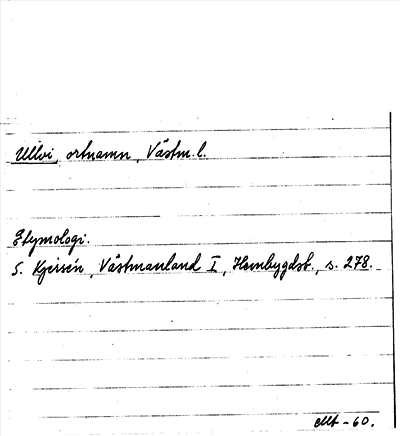 Ullvi, ortnamn, Västm.l.
Etymologi.
S. Kjersén, Västmanland I, Hembygdsb., s. 278.
-60.